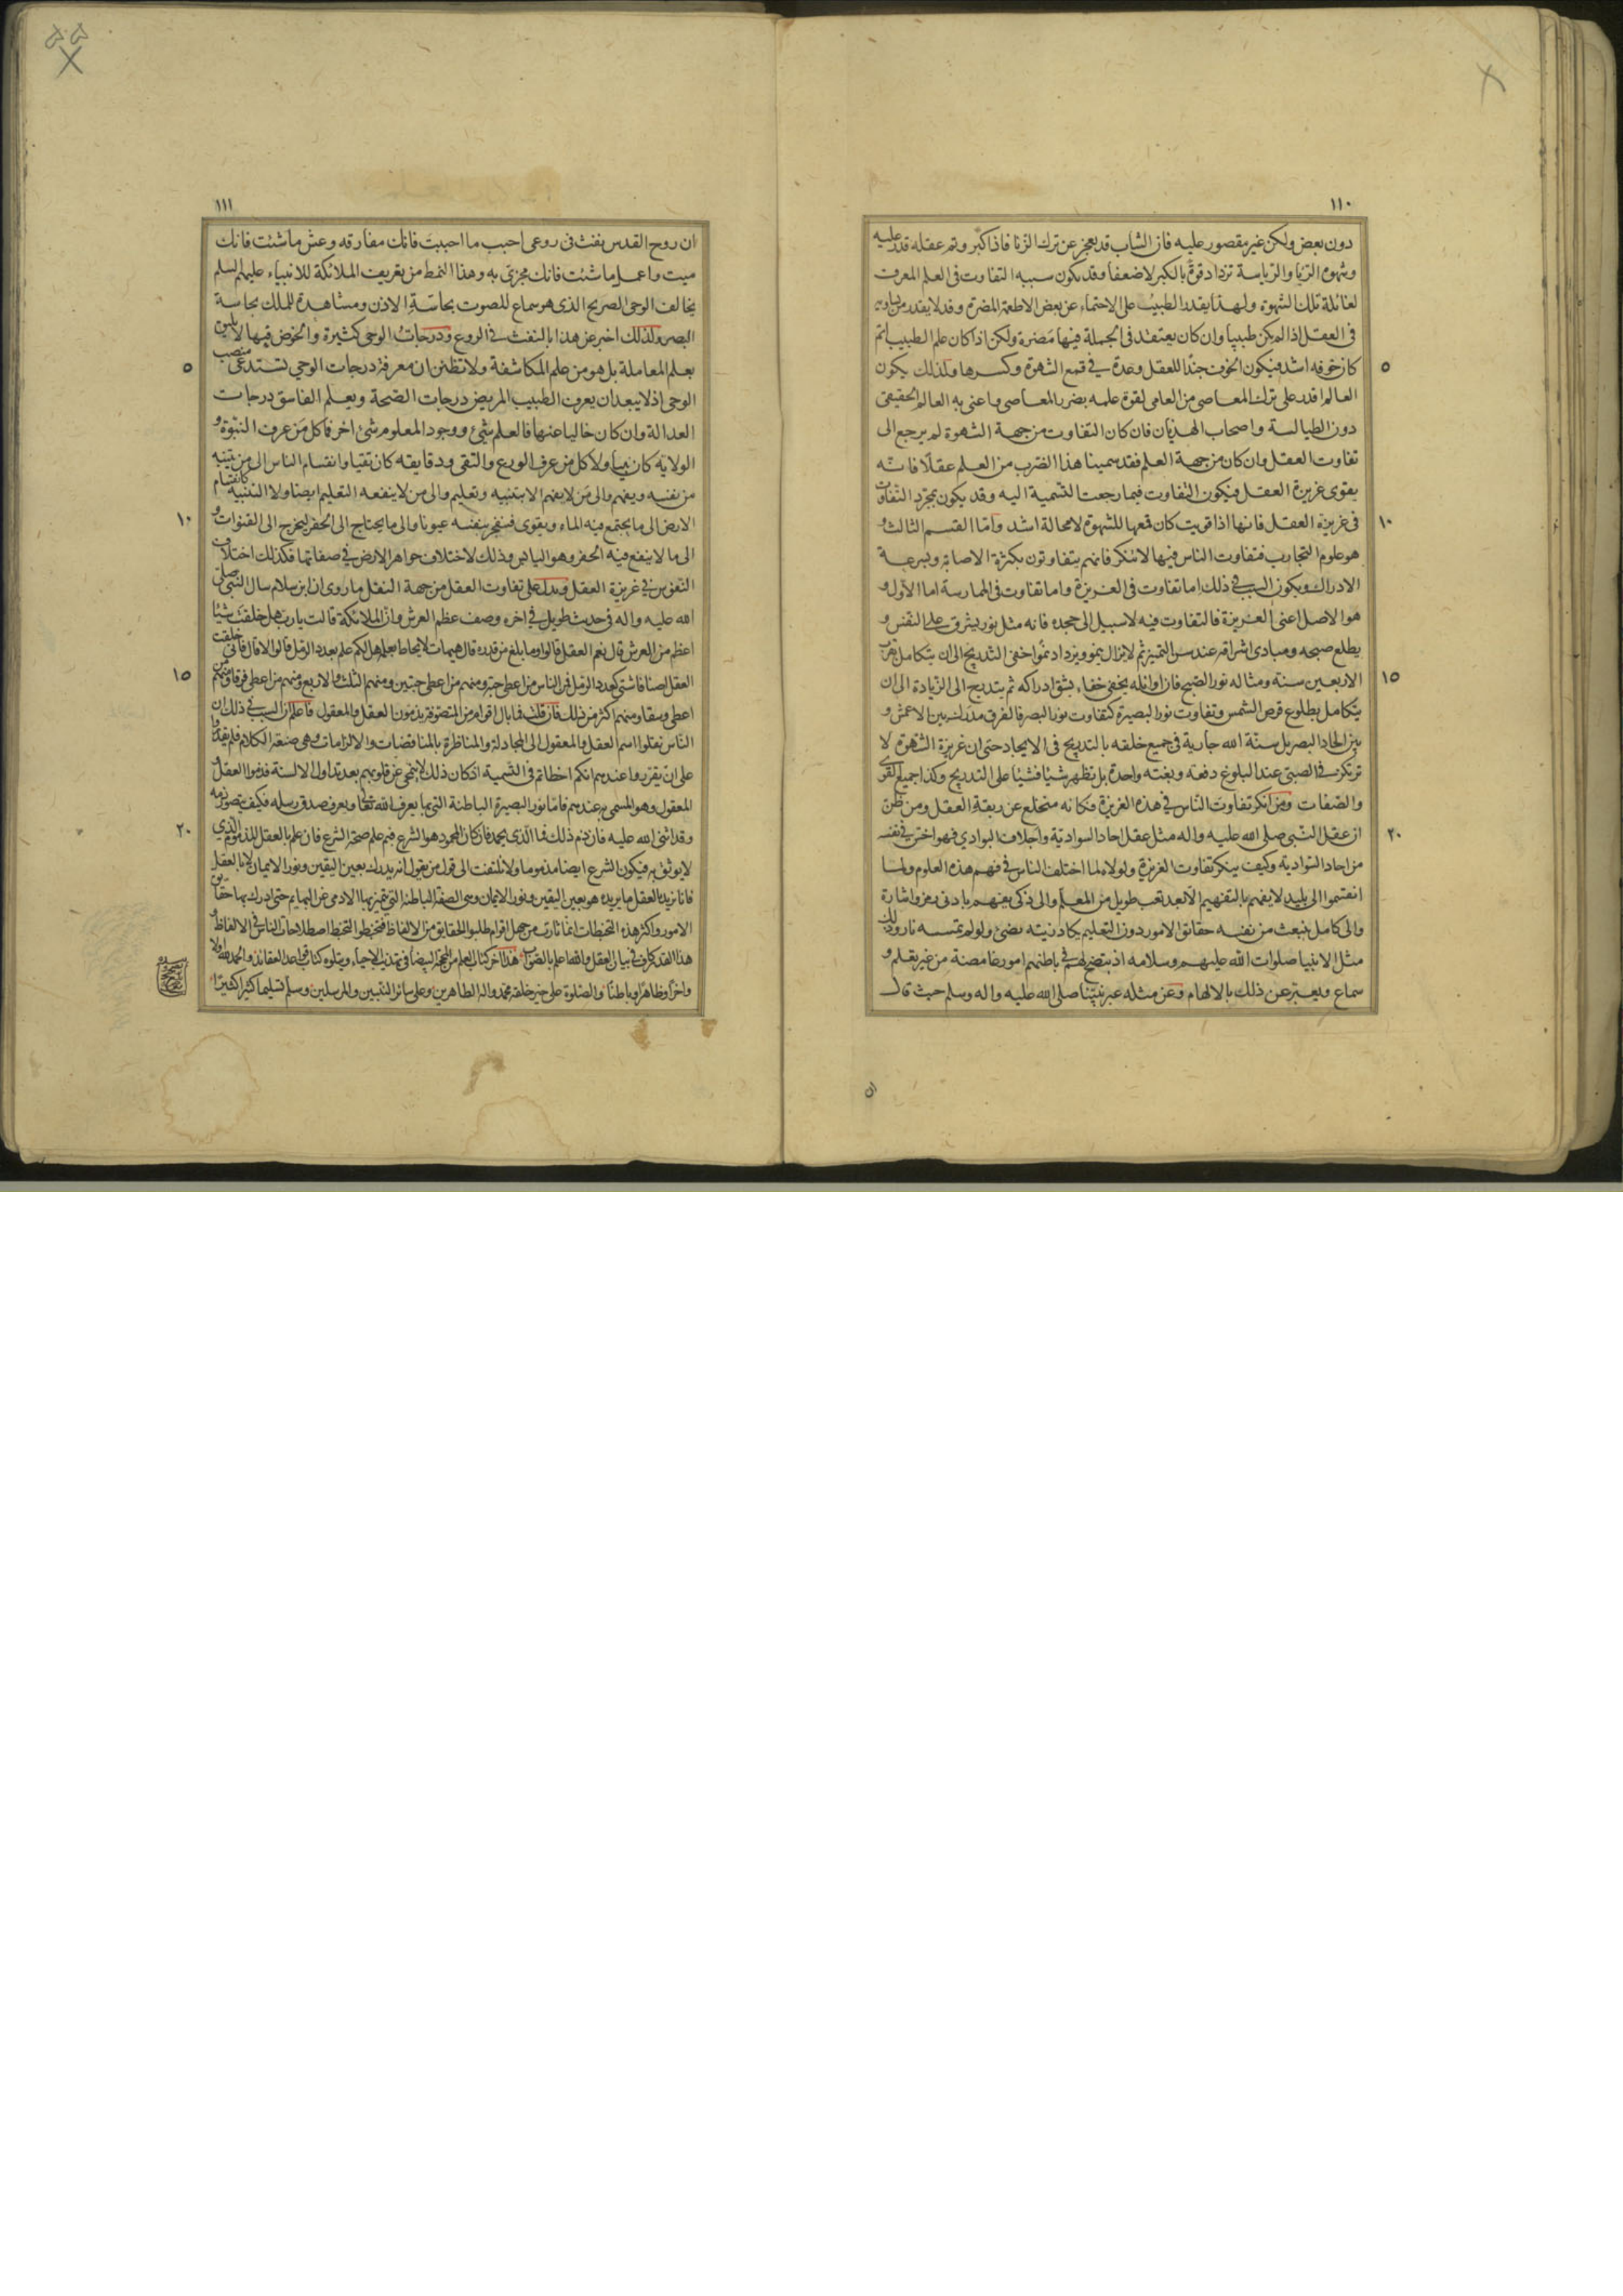 ١١٠
دون بعض ولكن غير مقصور عليه فان الشاب قد يعجز عن ترك الزنا فاذا كبر وتم عقله قدر عليه
وشهوة الريا والرياسة تزداد قوة بالكبر لا ضعفا وقد يكون سببه التفاوت فى العلم المعرف
لغائلة تلك الشهوة ولهذا يقدر الطبيب على الاحتماء عن بعض الاطعمة المضرة وقد لا يقدر من يساويه
فى العقل اذا لم يكن طبيبا وان كان يعتقد فى الجملة فيها مضرة ولكن اذا كان علم الطبيب اتم
٥
كان خوفه اشد فيكون الخوف جندا للعقل وعدة فى قمع الشهوة وكسرها ولذلك يكون
العالم اقدر على ترك المعاصى من العامى لقوة علمه بضرر المعاصى واعنى به العالم الحقيقى
دون الطيالسة واصحاب الهذيان فان كان التفاوت من جهة الشهوة لم يرجع الى
تفاوت العقل وان كان من جهة العلم فقد سمينا هذا الضرب من العلم عقلا فانه
يقوى غريزة العقل فيكون التفاوت فيما رجعت التسمية اليه وقد يكون بمجرد التفاوت
١٠
فى غريزة العقل فانها اذا قويت كان قمعها للشهوة لا محالة اشد واما القسم الثالث و
هو علوم التجارب فتفاوت الناس فيها لا ينكر فانهم يتفاوتون بكثرة الاصابة وبسرعة
الادراك ويكون السبب فى ذلك اما تفاوت فى الغريزة واما تفاوت فى الممارسة اما الاول و
هو الاصل اعنى الغريزة فالتفاوت فيه لا سبيل الى جحده فانه مثل نور يشرق على النفس و
يطلع صبحه ومبادى اشراقه عند سن التميز ثم لا يزال ينمو ويزداد نموا خفى التدريج الى ان يتكامل بقرب
١٥
الاربعين سنة ومثاله نور الصبح فان اوائله يخفى خفاء يشق ادراكه ثم يتدرج الى الزيادة الى ان
يتكامل بطلوع قرص الشمس وتفاوت نور البصيرة كتفاوت نور البصر فالفرق مدرك بين الاعمش و
بين الحاد البصر بل سنة الله جارية فى جميع خلقه بالتدريج فى الايجاد حتى ان غريزة الشهوة لا
تركز فى الصبى عند البلوغ دفعة وبغتة واحدة بل تظهر شيئا فشيئا على التدريج وكذا جميع القوى
والصفات ومن انكر تفاوت الناس فى هذه الغريزة فكانه منخلع عن ربقة العقل ومن ظن
٢٠
ان عقل النبى صلى الله عليه واله مثل عقل احاد السوادية واجلاف البوادي فهو اخس فى نفسه
من احاد السوادية وكيف ينكر تفاوت الغريزة ولولاه لما اختلف الناس فى فهم هذه العلوم ولما
انقسموا الى بليد لا يفهم بالتفهيم الا بعد تعب طويل من المعلم والى ذكى يفهم بادنى رمز واشارة
والى كامل ينبعث من نفسه حقائق الامور دون التعليم يكاد زيته يضئ ولو لم تمسسه نار وذلك
مثل الانبيا صلوات الله عليهم وسلامه اذ يتضح لهم فى باطنهم امور غامضة من غير تعلم و
سماع ويعبر عن ذلك بالالهام وعن مثله عبر نبينا صلى الله عليه واله وسلم حيث قال
ان
١١١
ان روح القدس نفث فى روعى احبب ما احببت فانك مفارقه وعش ما شئت فانك
ميت واعمل ما شئت فانك مجزى به وهذا النمط من تعريف الملائكة للانبياء عليهم السلم
يخالف الوحى الصريح الذى هو سماع للصوت بحاسة الاذن ومشاهدة للملك بحاسة
البصر ولذلك اخبر عن هذا بالنفث فى الروع ودرجات الوحى كثيرة والخوض فيها لا يليق
٥
بعلم المعاملة بل هو من علم المكاشفة ولا تظنن ان معرفة درجات الوحي تستدعى منصب
الوحى اذ لا يبعد ان يعرف الطبيب المريض درجات الصحة ويعلم الفاسق درجات
العدالة وان كان خاليا عنها فالعلم شئ ووجود المعلوم شئ اخر فما كل من عرف النبوة و
الولاية كان نبيا ولا كل من عرف الورع والتقى ودقايقه كان تقيا وانقسام الناس الى من يتنبه
من نفسه ويفهم والى من لا يفهم الا بتنبيه وتعليم والى من لا ينفعه التعليم ايضا ولا التنبيه كانقسام
١٠
الارض الى ما يجتمع فيه الماء ويقوى فينفجر بنفسه عيونا والى ما يحتاج الى الحفر ليخرج الى القنوات و
الى ما لا ينفع فيه الحفر وهو اليابس وذلك لاختلاف جواهر الارض فى صفاتها فكذلك اختلاف
النفوس فى غريزة العقل ويدل على تفاوت العقل من جهة النقل ما روى ان ابن سلام سال النبى صلى
الله عليه واله فى حديث طويل فى اخره وصف عظم العرش وان الملائكة قالت يا رب هل خلقت شيئا
اعظم من العرش قال نعم العقل قالوا وما بلغ من قدره قال هيهات لا يحاط بعلمه هل لكم علم بعدد الرمل قالوا لا قال فانى خلقت
١٥
العقل اصنافا شتى كعدد الرمل فمن الناس من اعطى حبة ومنهم من اعطى حبتين ومنهم الثلث والاربع ومنهم من اعطى فرقا ومنهم من
اعطى وسقا ومنهم اكثر من ذلك فان قلت فما بال اقوام من المتصوفة يذمون العقل والمعقول فاعلم ان السبب فى ذلك ان
الناس نقلوا اسم العقل والمعقول الى المجادلة والمناظرة بالمناقضات والالزامات وهى صنعة الكلام فلم يقدروا
على ان يقرروا عندهم انكم اخطاتم فى التسمية اذ كان ذلك لا ينمحى عن قلوبهم بعد تداول الالسنة فذموا العقل و
المعقول وهو المسمى به عندهم فاما نور البصيرة الباطنة التى بها يعرف الله تعالى ويعرف صدق رسله فكيف يتصور ذمه
٢٠
وقد اثنى الله عليه فان ذم ذلك فما الذى يحمد فان كان المحمود هو الشرع فبم علم صحة الشرع فان علم بالعقل المذموم الذي
لا يوثق به فيكون الشرع ايضا مذموما ولا نلتفت الى قول من يقول انه يدرك بعين اليقين ونور الايمان لا بالعقل
فانا نريد بالعقل ما يريده هو بعين اليقين ونور الايمان وهى الصفة الباطنة التى يتميز بها الادمى عن البهايم حتى ادرك بها حقايق
الامور واكثر هذه التخبطات انما ثارت من جهل اقوام طلبوا الحقايق من الالفاظ فتخبطوا لتخبط اصطلاحات الناس فى الالفاظ
هذا القدر كاف فى بيان العقل والله اعلم بالصواب هذا اخر كتاب العلم من المحجة البيضا فى تهذيب الاحياء ويتلوه كتاب قواعد العقائد والحمد لله اولا
واخرا وظاهرا وباطنا والصلوة على خير خلقه محمد واله الطاهرين وعلى سائر النبيين والمرسلين وسلم تسليما كثيرا كثيرا